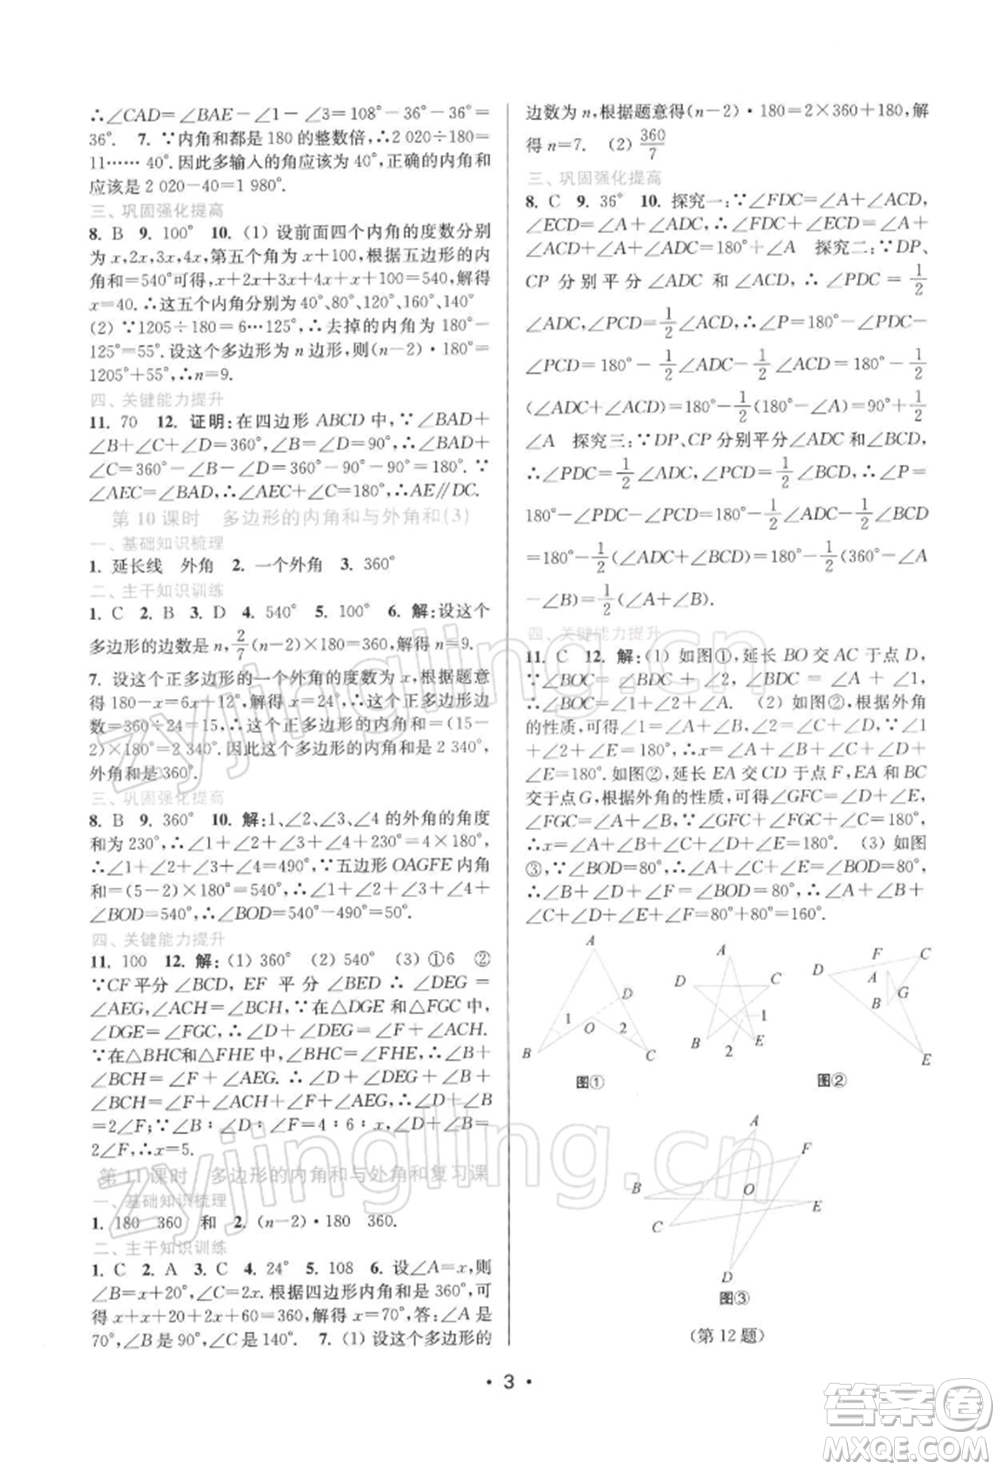 ∴∠CAD=∠BAE-∠1-∠3=108°-36°-36°=
36°. 7. ∵内角和都是 180 的整数倍,∴2 020÷180=
11……40. 因此多输入的角应该为 40°,正确的内角和
应该是 2 020-40=1 980°.
三、巩固强化提高
8. B 9. 100° 10. (1) 设前面四个内角的度数分别
为 x,2x,3x,4x,第五个角为 x+100,根据五边形的内
角和=540°可得,x+2x+3x+4x+x+100=540,解得
x=40. ∴这五个内角分别为 40°、80°、120°、160°、140°
(2) ∵1205÷180=6…125°,∴去掉的内角为 180°-
125°=55°. 设这个多边形为 n 边形,则(n-2)·180°=
1205°+55°,∴n=9.
四、关键能力提升
11. 70 12. 证明:在四边形 ABCD 中,∵∠BAD+
∠B+∠C+∠D=360°,∠B=∠D=90°,∴∠BAD+
∠C=180°. ∵AE 平分∠BAD,∴∠BAE=∠EAD. ∵
∠AEC=∠BAD,∴∠AEC+∠C=180°,∴AE∥DC.
第 10 课时 多边形的内角和与外角和(3)
一、基础知识梳理
1. 延长线 外角 2. 一个外角 3. 360°
二、主干知识训练
1. C 2. B 3. D 4. 540° 5. 100° 6. 解:设这个
多边形的边数是 n,2/7(n-2)×180=360,解得 n=9.
7. 设这个正多边形的一个外角的度数为 x,根据题意
得 180-x=6x+12°,解得 x=24,所以这个正多边形边
数=360÷24=15,∴这个正多边形的内角和=(15-
2)×180°=2 340°. ∴这个正多边形的内角和是 2 340°,
外角和是 360°.
三、巩固强化提高
8. B 9. 360° 10. 解:∠1、∠2、∠3、∠4 的外角的角度
和为 220°,∴∠1+∠2+∠3+∠4+220°=4×180°,
∴∠1+∠2+∠3+∠4=490°. ∵五边形 OAGFE 内角
和=(5-2)×180°=540°,∴∠1+∠2+∠3+∠4+
∠BOD=540°,∴∠BOD=540°-490°=50°.
四、关键能力提升
11. 100 12. 解:(1) 360° (2) 540° (3) ①6 ②
∵CF 平分 ∠BCD, EF 平分 ∠BED ∴∠DEG=
∠AEG,∠ACH=∠BCH. ∵在△DGE 和△FGC 中,
∠DGE=∠FGC,∴∠D+∠DEG=∠F+∠ACH.
∵在△BHC 和△FHE 中,∠BHC=∠FHE,∴∠B+
∠BCH=∠F+∠AEG. ∴∠D+∠DEG+∠B+
∠BCH=∠F+∠ACH+∠F+∠AEG,∴∠D+∠B
=2∠F;∵∠B:∠D:∠F=4:6:x,∴x=5.
第 11 课时 多边形的内角和与外角和复习课
一、基础知识梳理
1. 180 360 和 2. (n-2)·180 360.
二、主干知识训练
1. C 2. A 3. C 4. 24° 5. 108 6. 设∠A=x,则
∠B=x+20°,∠C=2x. 根据四边形内角和是 360°,可
得 x+x+20+2x+60=360,解得 x=70°,答:∠A 是
70°,∠B 是 90°,∠C 是 140°. 7. (1) 设这个多边形的
边数为 n,根据题意得(n-2)·180=2×360+180,解
得 n=7. (2) 360/7
三、巩固强化提高
8. C 9. 36° 10. 探究一:∵∠FDC=∠A+∠ACD,
∠ECD=∠A+∠ADC,∴∠FDC+∠ECD=∠A+
∠ACD+∠A+∠ADC=180°+∠A 探究二:∵DP、
CP 分别平分 ∠ADC 和 ∠ACD, ∴∠PDC=1/2
∠ADC,∠PCD=1/2∠ACD,∴∠P=180°-∠PDC-
∠PCD=180°-1/2∠ADC-1/2∠ACD=180°-1/2
(∠ADC+∠ACD)=180°-1/2(180°-∠A)=90°+1/2
∠A 探究三:∵DP、CP 分别平分∠ADC 和∠BCD,
∴∠PDC=1/2∠ADC,∠PCD=1/2∠BCD,∴∠P=
180°-∠PDC-∠PCD=180°-1/2∠ADC-1/2∠BCD
=180°-1/2(∠ADC+∠BCD)=180°-1/2(360°-∠A
-∠B)=1/2(∠A+∠B).
四、关键能力提升
11. C 12. 解:(1) 如图①,延长 BO 交 AC 于点 D,
∵∠BOC=∠BDC+∠C, ∠BDC=∠A+∠B,
∴∠BOC=∠1+∠2+∠A. (2) 如图②,根据外角
的性质,可得∠1=∠A+∠B,∠2=∠C+∠D. ∵∠1
+∠2+∠E=180°,∴x=∠A+∠B+∠C+∠D+
∠E=180°. 如图②,延长 EA 交 CD 于点 F,EA 和 BC
交于点G,根据外角的性质,可得∠GFC=∠D+∠E,
∠FGC=∠A+∠B. ∵∠GFC+∠FGC+∠C=180°,
∴x=∠A+∠B+∠C+∠D+∠E=180°. (3) 如图
③,∵∠BOD=80°,∴∠A+∠B+∠D=80°,
∴∠C+∠E+∠F=∠BOD=80°,∴∠A+∠B+
∠C+∠D+∠E+∠F=80°+80°=160°.
A
D
1 O 2
B C
图①
A
D D
B
1
2
C E
F
A
D
B G
C
E
图②
A
F
B O
C E
D
图③
(第 12 题)
· 3 ·
zyjingling.cn
zyjingling.cn
答案圈
MXQE.COM